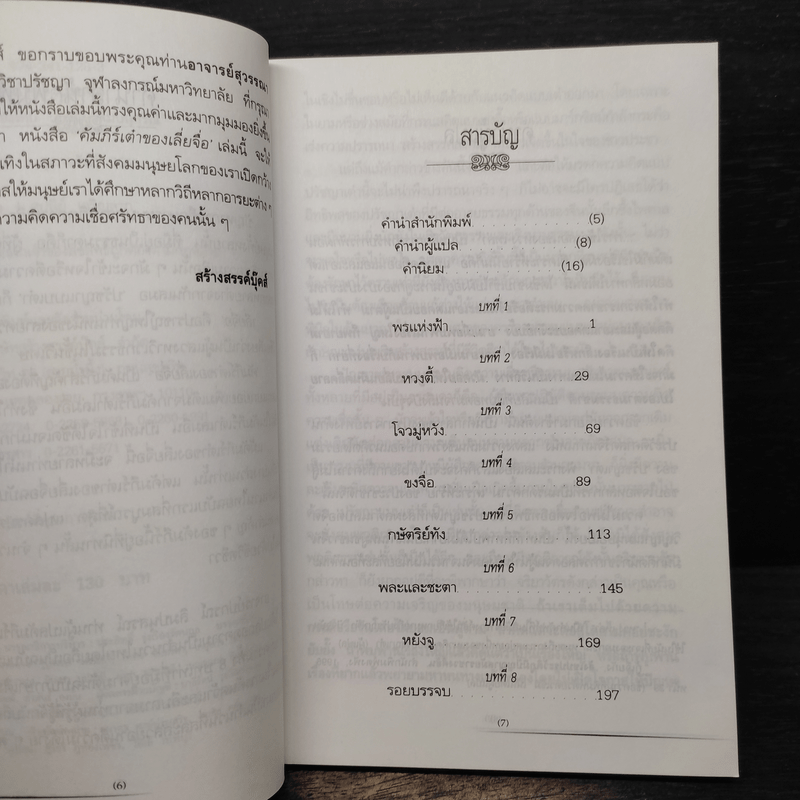 ส์ ขอกราบขอบพระคุณท่านอาจารย์สุวรรณา
วิชาปรัชญา จุฬาลงกรณ์มหาวิทยาลัย ที่กรุณา
ให้หนังสือเล่มนี้ทรงคุณค่าและมากมุมมองยิ่งขึ้น
หนังสือ 'คัมภีร์เต๋าของเลี่ยจื่อ' เล่มนี้ จะให้
เทิงในสภาวะที่สังคมมนุษยโลกของเราเปิดกว้าง
สให้มนุษย์เราได้ศึกษาหลากวิถีหลากอารยะต่าง ๆ
ความคิดความเชื่อศรัทธาของคนนั้น ๆ
สร้างสรรค์บุ๊คส์
(6)
สารบัญ
คำนำสำนักพิมพ์ (5)
คำนำผู้แปล (8)
คำนิยม (16)
บทที่ 1
พรแห่งฟ้า 1
บทที่ 2
หวงตี้ 29
บทที่ 3
โจวมู่หวัง 69
บทที่ 4
ขงจื่อ 89
บทที่ 5
กษัตริย์ทัง 113
บทที่ 6
พละและชะตา 145
บทที่ 7
หยังจู 169
บทที่ 8
รอยบรรจบ 197
(7)